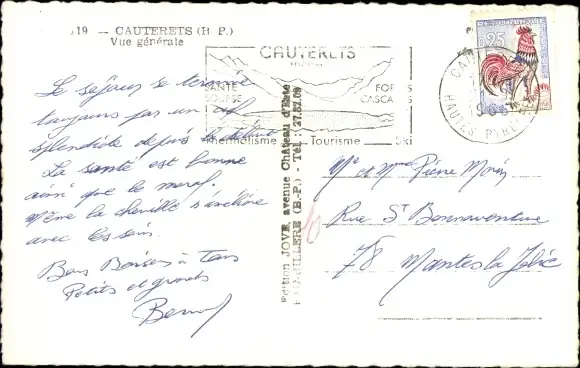 19 — CAUTERETS (H. P.)
Vue générale
CAUTERETS
SANTÉ
FORÊTS
CASCADES
Thermalisme Tourisme Ski
0,25
HAUTES PYRENEES
Edition JOVE, avenue Château d'Este
BILLERE (B.-P.) - Tél. 27.51.09
Le séjour se termine
toujours par un
splendide depuis le début
La santé est bonne
ainsi que le moral.
Même la cheville s'améliore
avec les soins.
Bons Baisers à Tous
Petits et grands
Mr et Mme Pierre
Rue St Bonnaventure
78 Mantes la Jolie